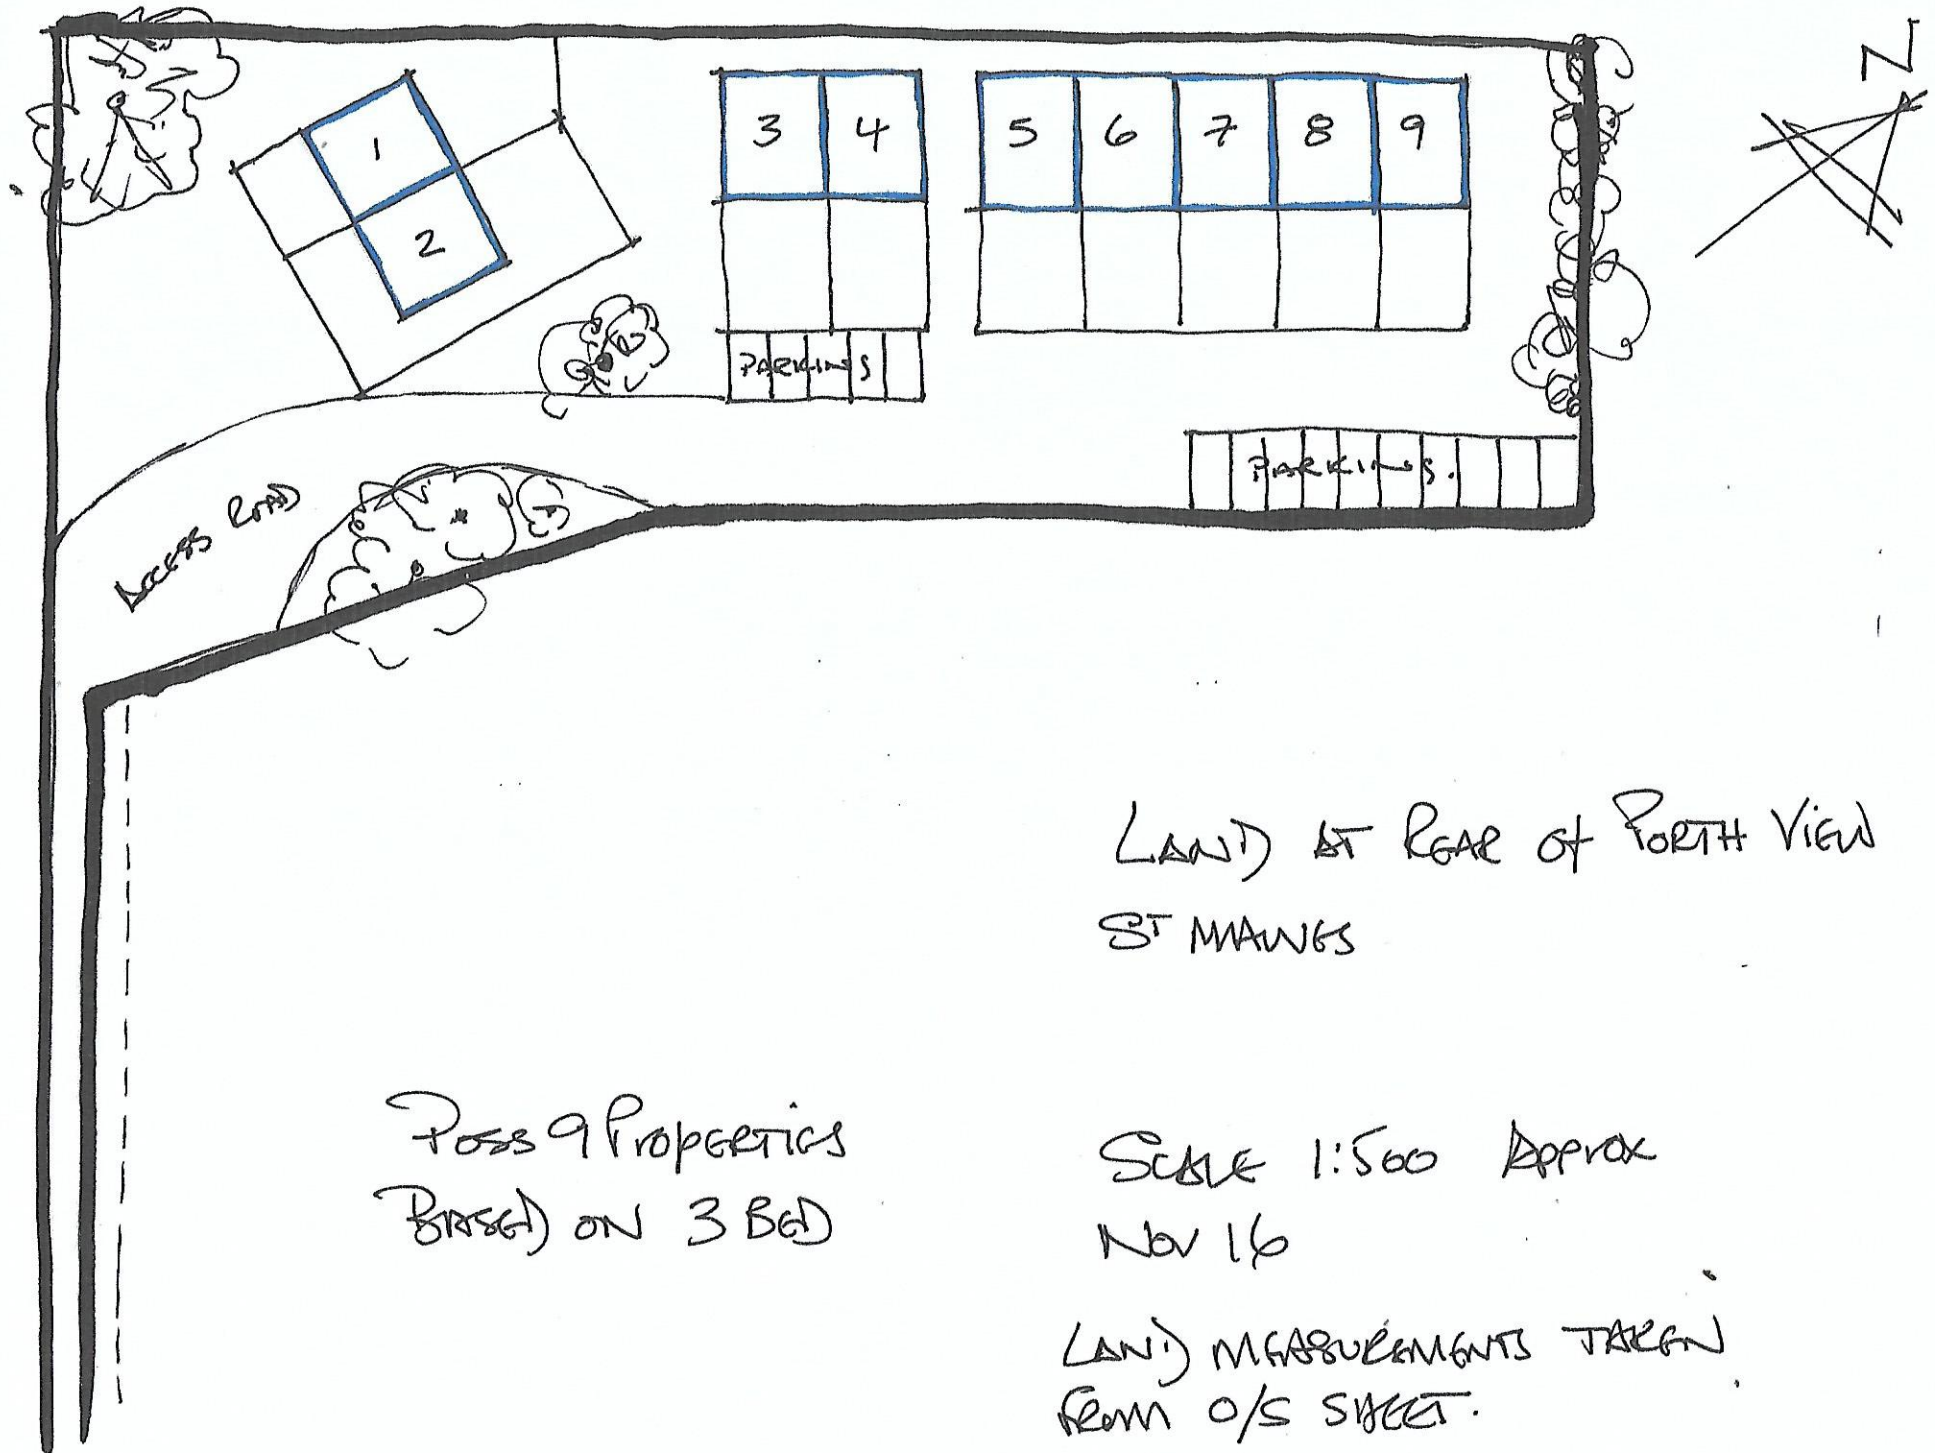 N
1
2
3
4
5
6
7
8
9
PARKING
PARKING.
ACCESS ROAD
LAND AT REAR OF PORTH VIEW
ST MAWES
POSS 9 PROPERTIES
BASED ON 3 BED
SCALE 1:500 APPROX
NOV 16
LAND MEASUREMENTS TAKEN
FROM O/S SHEET.